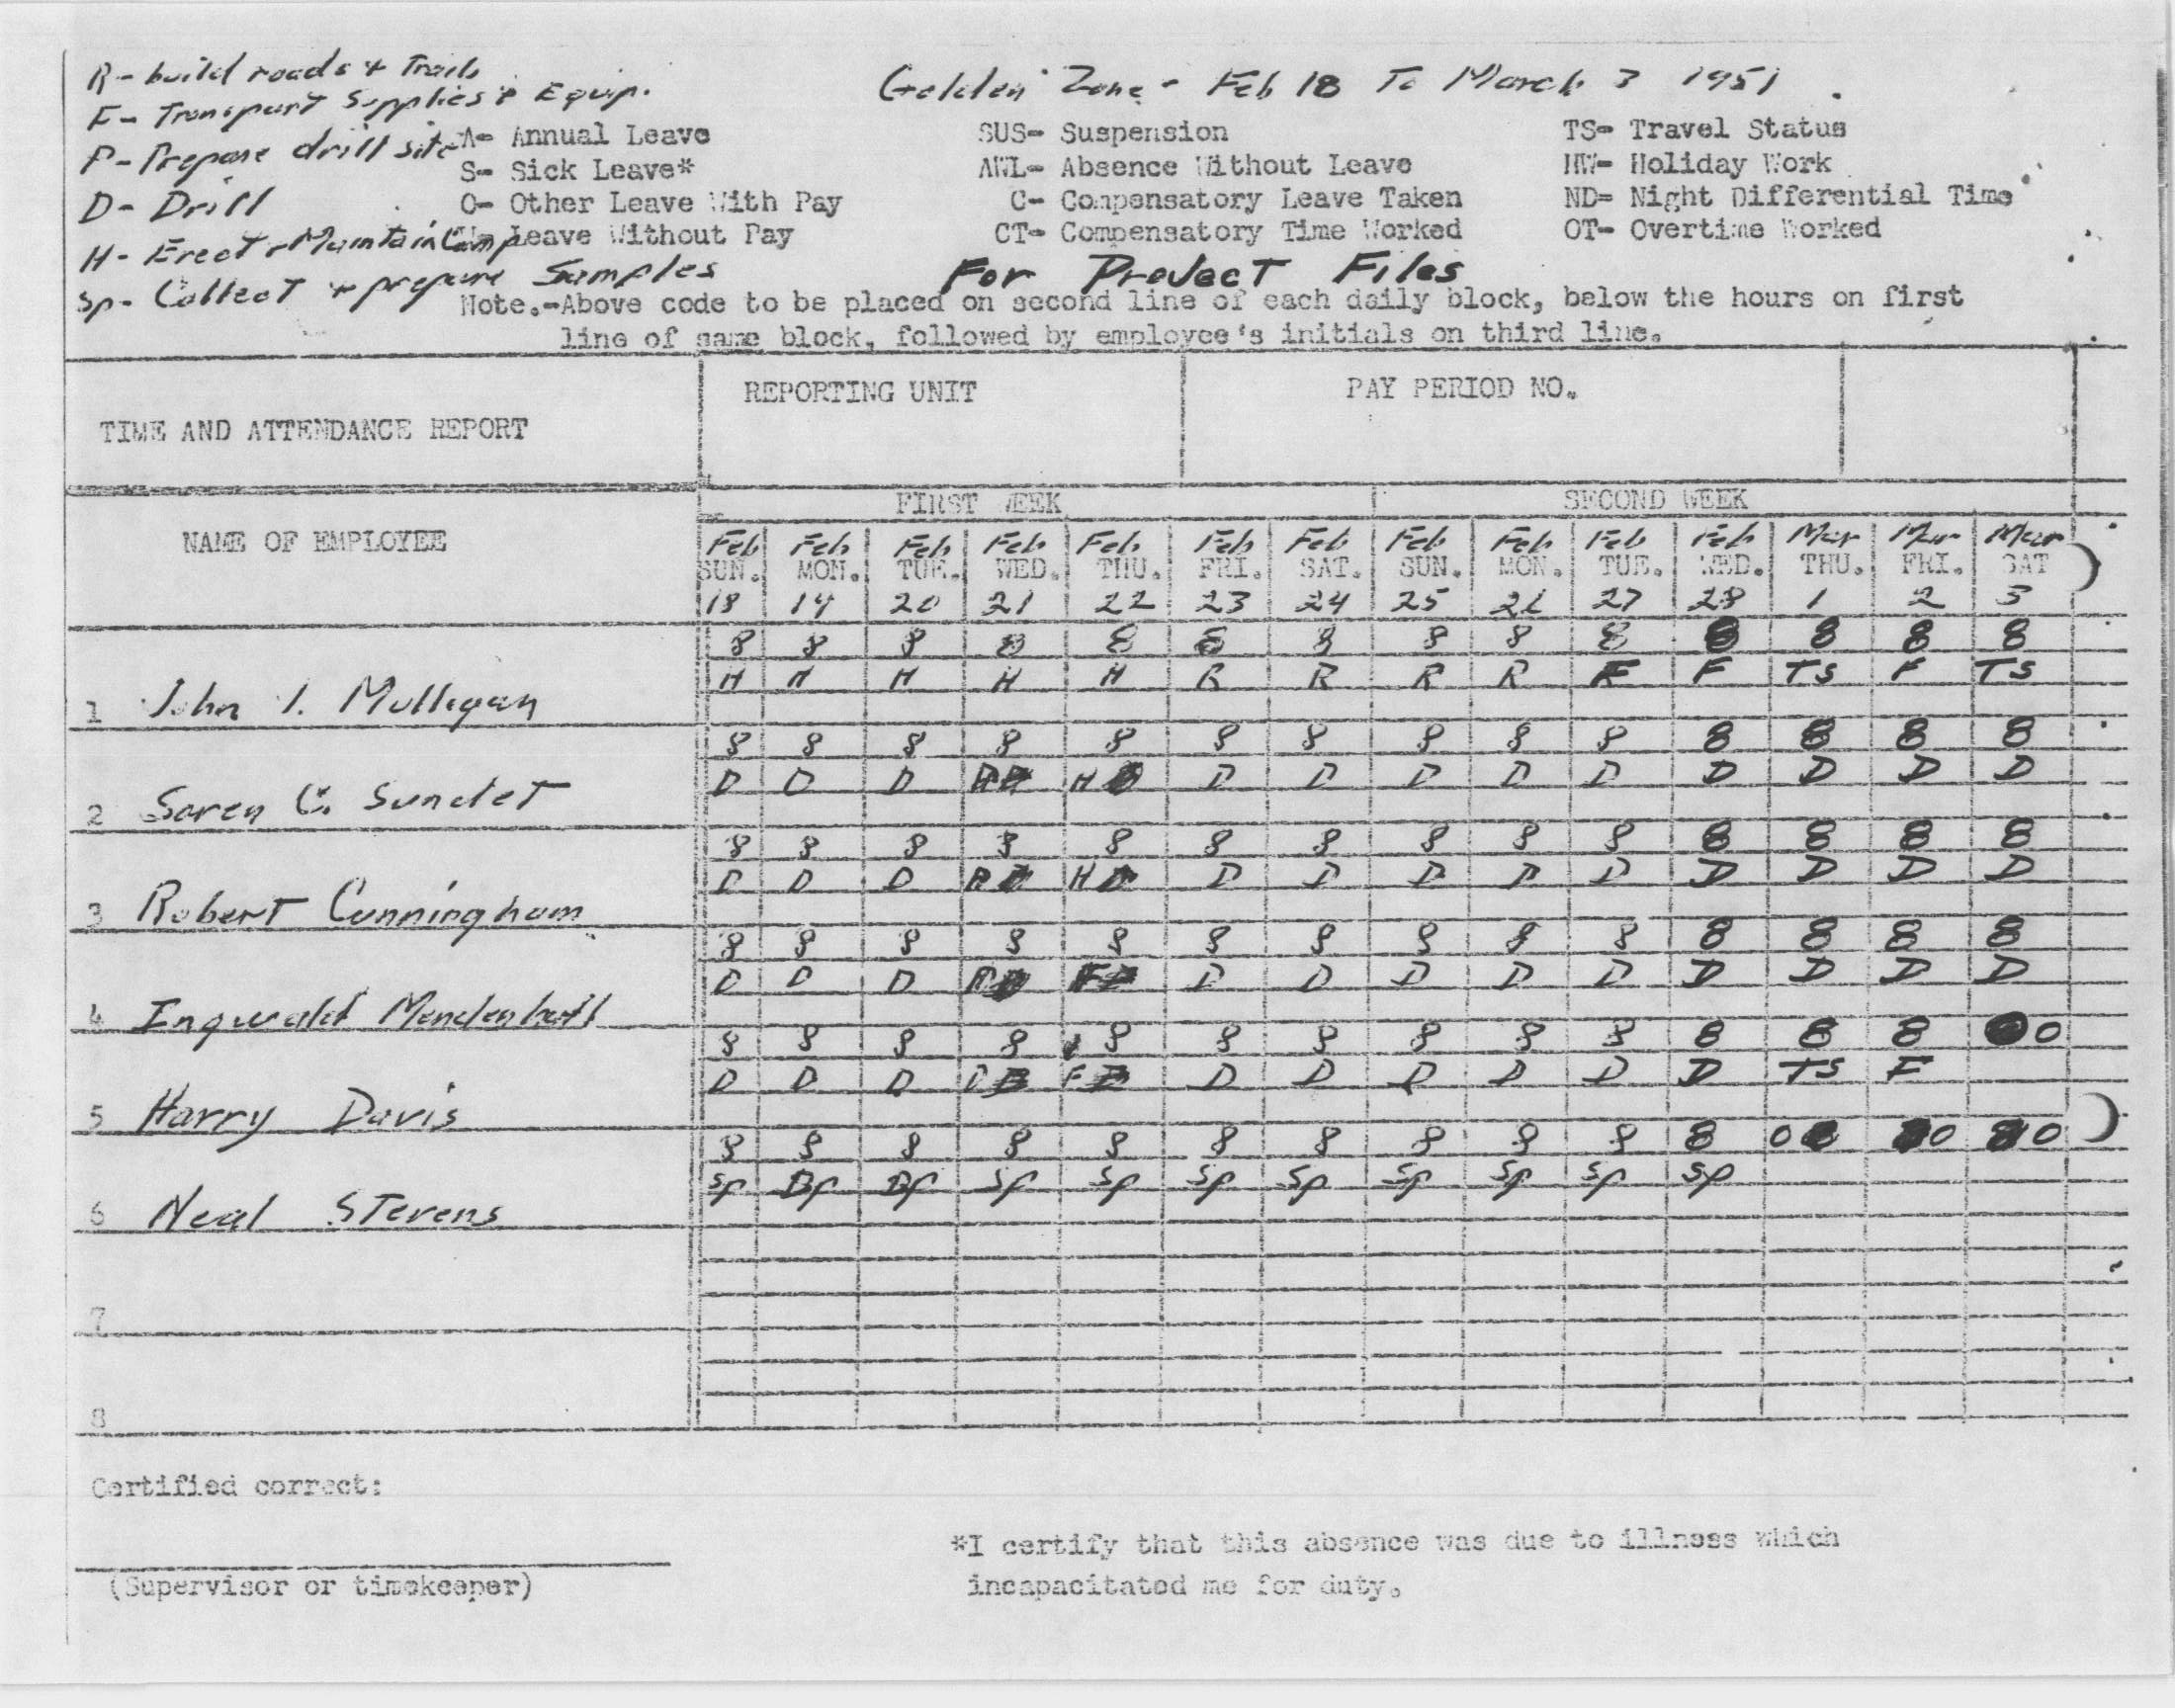 R- build roads & Trails
F- Transport Supplies & Equip.
P- Prepare drill site
D- Drill
H- Erect & Maintain Camp
Sp- Collect & prepare Samples
Golden Zone - Feb 18 To March 3 1951
A- Annual Leave
S- Sick Leave*
O- Other Leave With Pay
Leave Without Pay
SUS- Suspension
AWL- Absence Without Leave
C- Compensatory Leave Taken
CT- Compensatory Time Worked
TS- Travel Status
HW- Holiday Work
ND- Night Differential Time
OT- Overtime Worked
For Project Files
Note.-Above code to be placed on second line of each daily block, below the hours on first
line of same block, followed by employee's initials on third line.
TIME AND ATTENDANCE REPORT
REPORTING UNIT
PAY PERIOD NO.
NAME OF EMPLOYEE
FIRST WEEK
SECOND WEEK
Feb Feb Feb Feb Feb Feb Feb Feb Feb Feb Feb Mar Mar Mar
SUN. MON. TUE. WED. THU. FRI. SAT. SUN. MON. TUE. WED. THU. FRI. SAT
18 19 20 21 22 23 24 25 26 27 28 1 2 3
8 8 8 8 8 8 8 8 8 8 8 8 8 8
H H H H H R R R R F F TS F TS
1 John J. Mulligan
8 8 8 8 8 8 8 8 8 8 8 8 8 8
D D D H D D D D D D D D D
2 Soren C. Sundet
8 8 8 8 8 8 8 8 8 8 8 8 8 8
D D D H D D D D D D D D D
3 Robert Cunningham
8 8 8 8 8 8 8 8 8 8 8 8 8 8
D D D F D D D D D D D D D
4 Ingwald Mendenhall
8 8 8 8 8 8 8 8 8 8 8 8 8 0
D D D F D D D D D D TS F
5 Harry Davis
8 8 8 8 8 8 8 8 8 8 8 0 0 0
Sp Sp Sp Sp Sp Sp Sp Sp Sp Sp Sp
6 Neal Stevens
7
8
Certified correct:
(Supervisor or timekeeper)
*I certify that this absence was due to illness which
incapacitated me for duty.